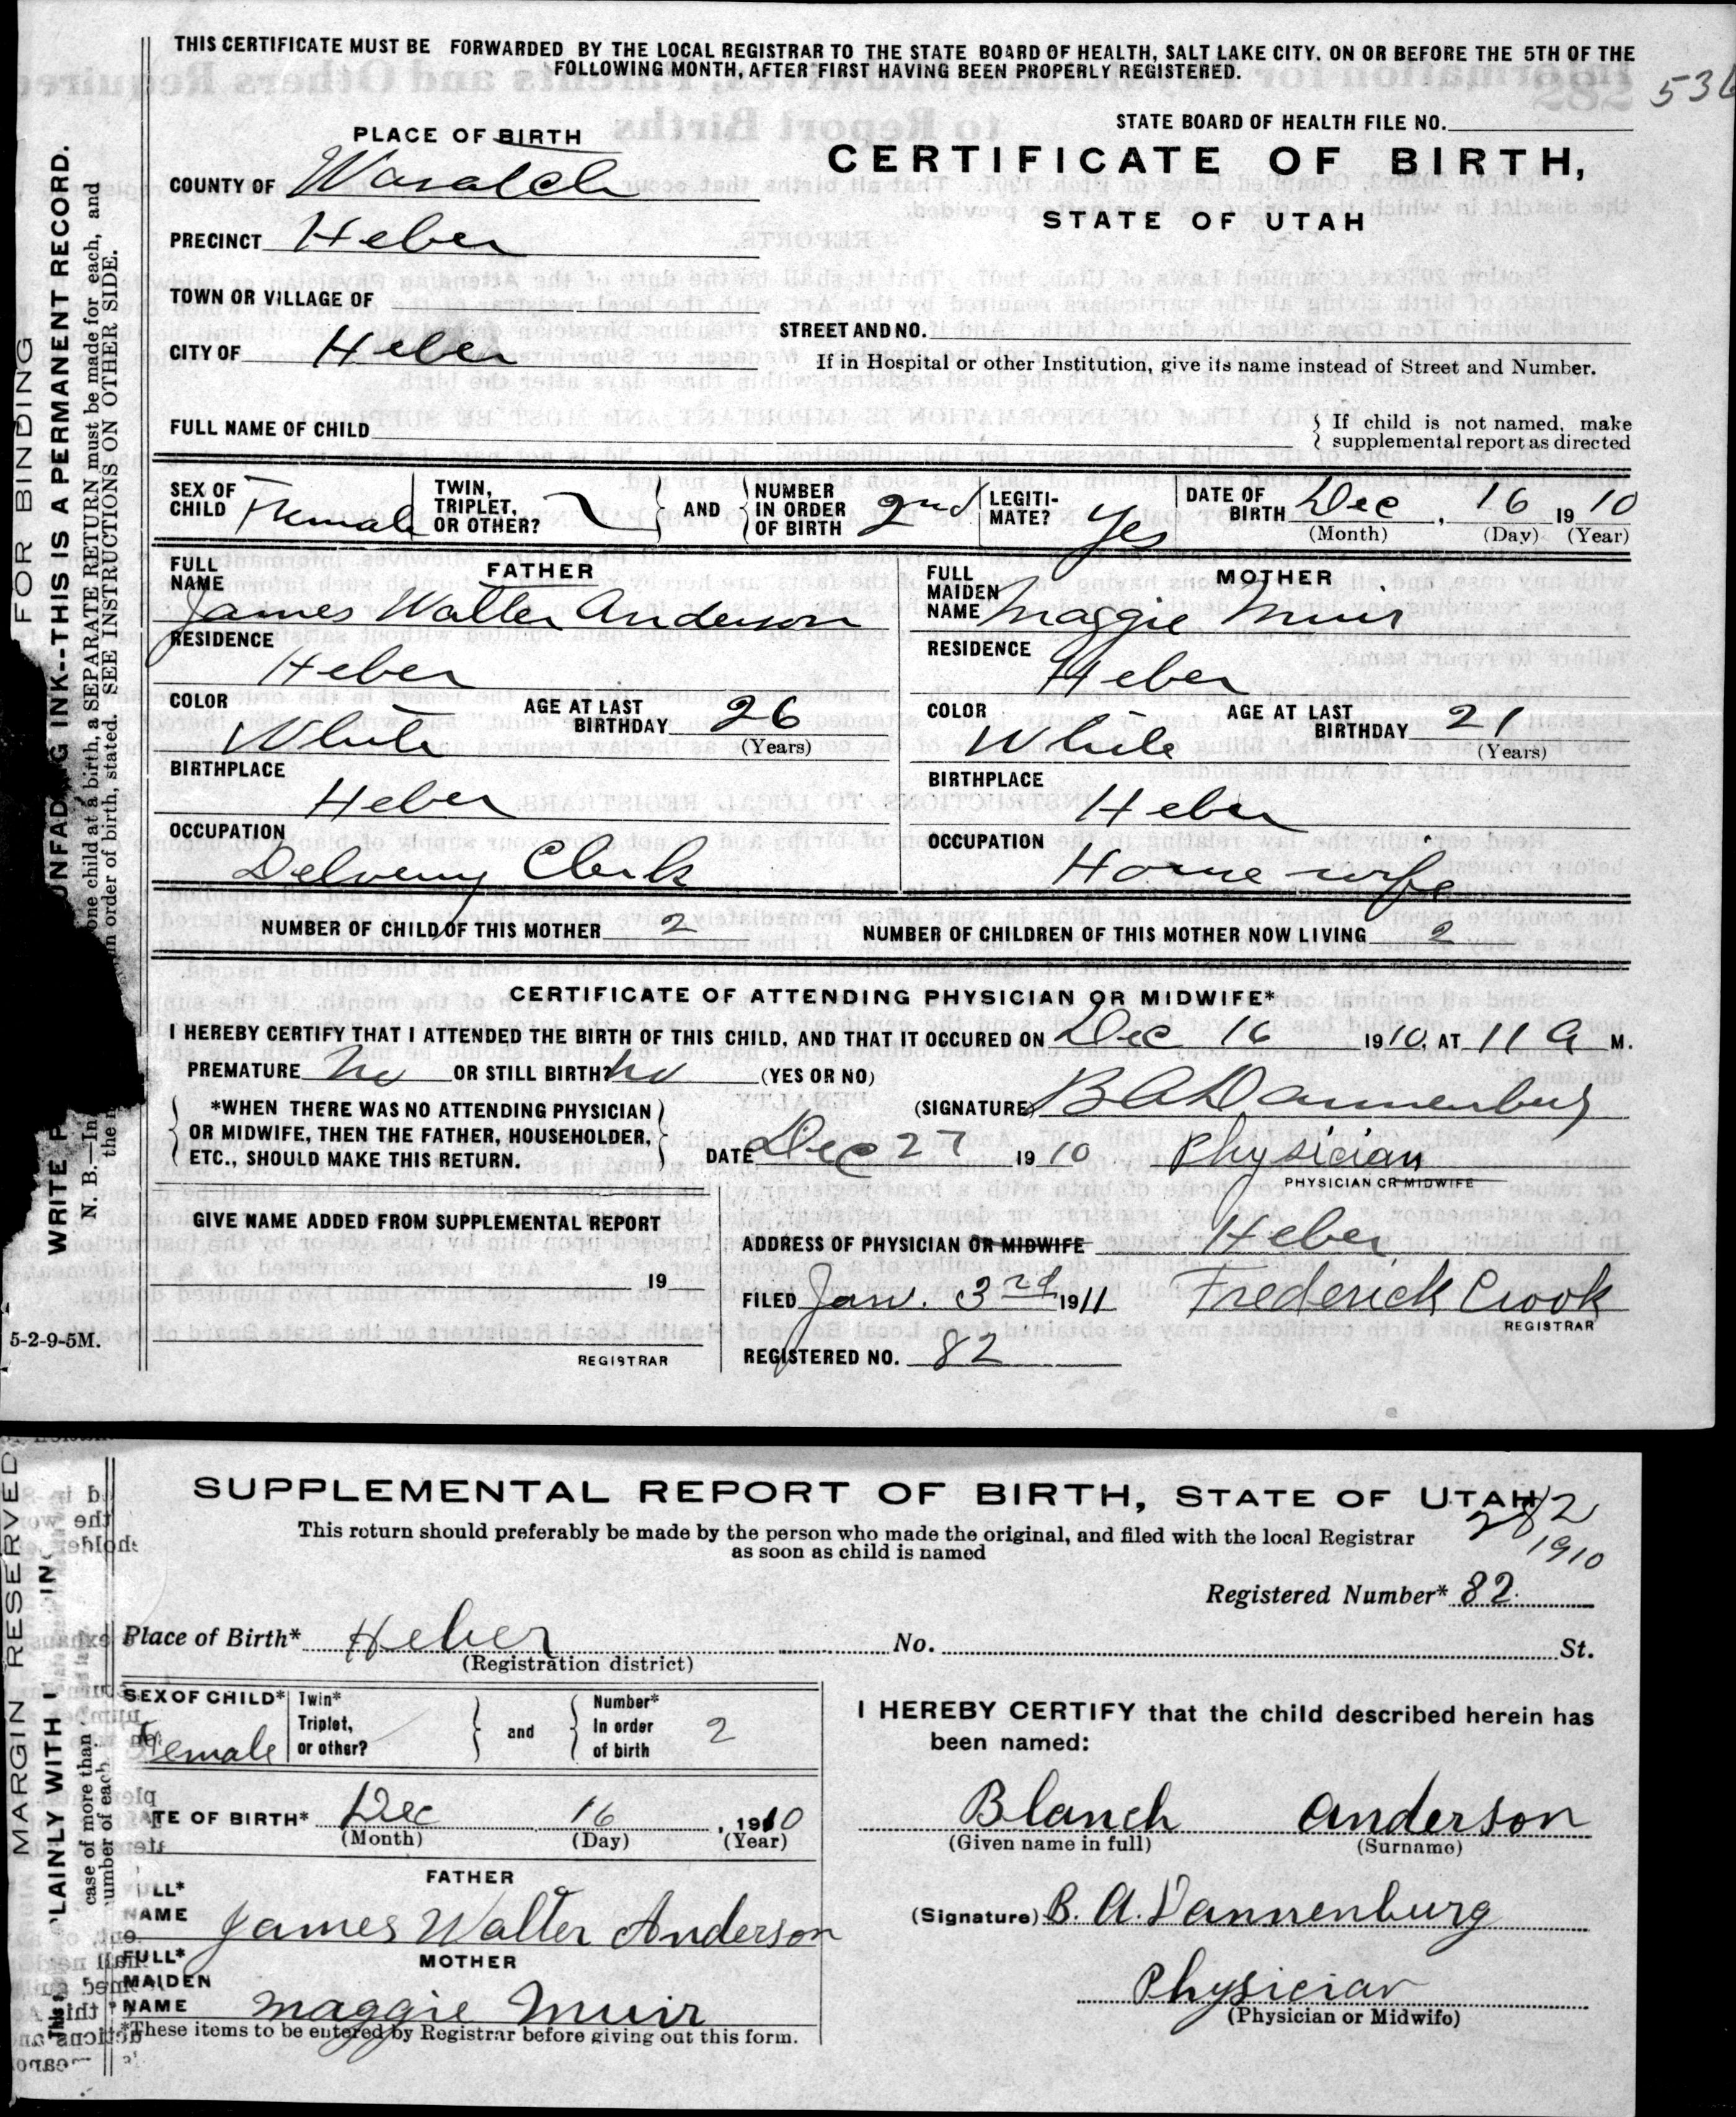 THIS CERTIFICATE MUST BE FORWARDED BY THE LOCAL REGISTRAR TO THE STATE BOARD OF HEALTH, SALT LAKE CITY. ON OR BEFORE THE 5TH OF THE
FOLLOWING MONTH, AFTER FIRST HAVING BEEN PROPERLY REGISTERED.
PLACE OF BIRTH
STATE BOARD OF HEALTH FILE NO.
CERTIFICATE OF BIRTH,
STATE OF UTAH
COUNTY OF Wasatch
PRECINCT Heber
TOWN OR VILLAGE OF
CITY OF Heber
STREET AND NO.
If in Hospital or other Institution, give its name instead of Street and Number.
FULL NAME OF CHILD
If child is not named, make
supplemental report as directed
SEX OF CHILD Female TWIN, TRIPLET, OR OTHER? AND NUMBER IN ORDER OF BIRTH 2nd LEGITI-MATE? Yes DATE OF BIRTH Dec, 16 1910
(Month) (Day) (Year)
FATHER
FULL NAME
James Walter Anderson
RESIDENCE
Heber
COLOR White AGE AT LAST BIRTHDAY 26
(Years)
BIRTHPLACE
Heber
OCCUPATION
Delivery Clerk
MOTHER
FULL MAIDEN NAME Maggie Muir
RESIDENCE
Heber
COLOR White AGE AT LAST BIRTHDAY 21
(Years)
BIRTHPLACE
Heber
OCCUPATION
House wife
NUMBER OF CHILD OF THIS MOTHER 2 NUMBER OF CHILDREN OF THIS MOTHER NOW LIVING 2
CERTIFICATE OF ATTENDING PHYSICIAN OR MIDWIFE*
I HEREBY CERTIFY THAT I ATTENDED THE BIRTH OF THIS CHILD, AND THAT IT OCCURED ON Dec 16 1910, AT 11 A M.
PREMATURE No OR STILL BIRTH No (YES OR NO)
*WHEN THERE WAS NO ATTENDING PHYSICIAN
OR MIDWIFE, THEN THE FATHER, HOUSEHOLDER,
ETC., SHOULD MAKE THIS RETURN.
(SIGNATURE) B A Dannenburg
DATE Dec 27 1910 Physician
PHYSICIAN OR MIDWIFE
GIVE NAME ADDED FROM SUPPLEMENTAL REPORT
19
REGISTRAR
ADDRESS OF PHYSICIAN OR MIDWIFE Heber
FILED Jan. 3rd 1911 Frederick Crook
REGISTRAR
REGISTERED NO. 82
FOR BINDING
INK--THIS IS A PERMANENT RECORD.
N. B.—In
one child at a birth, a SEPARATE RETURN must be made for each, and
order of birth, stated. SEE INSTRUCTIONS ON OTHER SIDE.
5-2-9-5M.
SUPPLEMENTAL REPORT OF BIRTH, STATE OF UTAH
282
1910
This return should preferably be made by the person who made the original, and filed with the local Registrar
as soon as child is named
Registered Number* 82
Place of Birth* Heber No. St.
(Registration district)
SEX OF CHILD* Female Twin* Triplet, or other? and Number* In order of birth 2
TE OF BIRTH* Dec 16, 1910
(Month) (Day) (Year)
FATHER
LL*
NAME James Walter Anderson
MOTHER
FULL*
MAIDEN
NAME Maggie Muir
*These items to be entered by Registrar before giving out this form.
I HEREBY CERTIFY that the child described herein has
been named:
Blanch Anderson
(Given name in full) (Surname)
(Signature) B. A. Dannenburg
Physician
(Physician or Midwife)
MARGIN RESERVED
PLAINLY WITH
case of more than
number of each